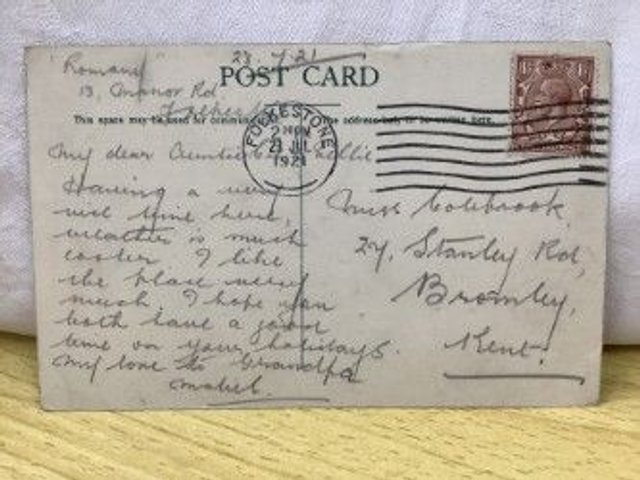 "Romany" 23 7 21
POST CARD
13, Manor Rd
Folkestone
This space may be used for communication The address only to be written here.
FOLKESTONE
2 PM
23 JUL
1921
My dear Auntie Nellie
Having a very
nice time here,
weather is much
cooler I like
the place very
much. I hope you
both have a good
time on your holidays.
My love to Grandpa
Mabel.
Miss Colebrook,
24, Stanley Rd,
Bromley,
Kent.